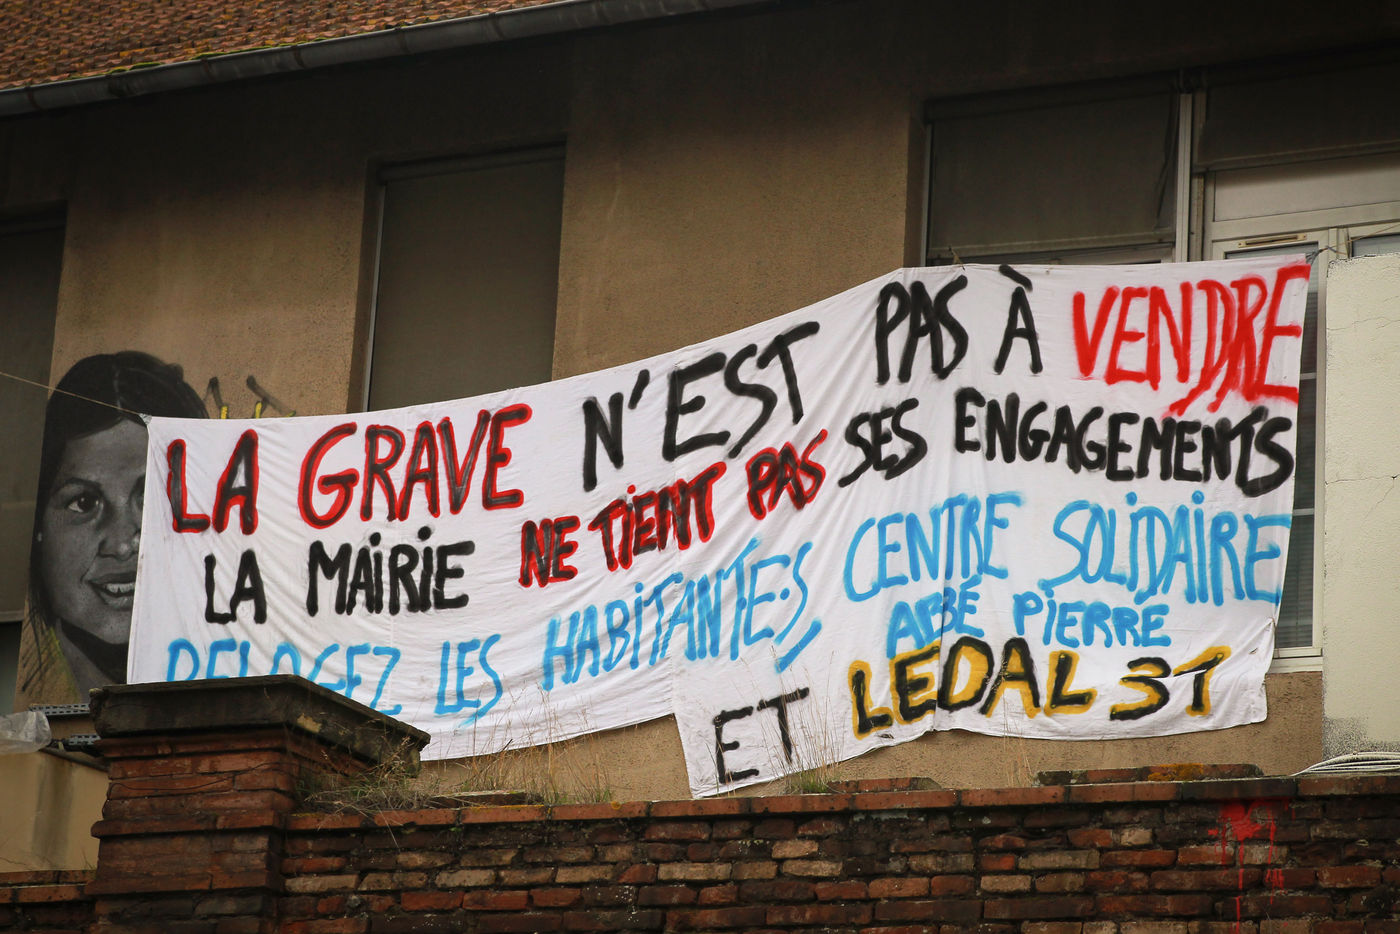 LA GRAVE N'EST PAS À VENDRE
LA MAIRIE NE TIENT PAS SES ENGAGEMENTS
RELOGEZ LES HABITANTE·S, CENTRE SOLIDAIRE
ABBÉ PIERRE
ET LE DAL 31